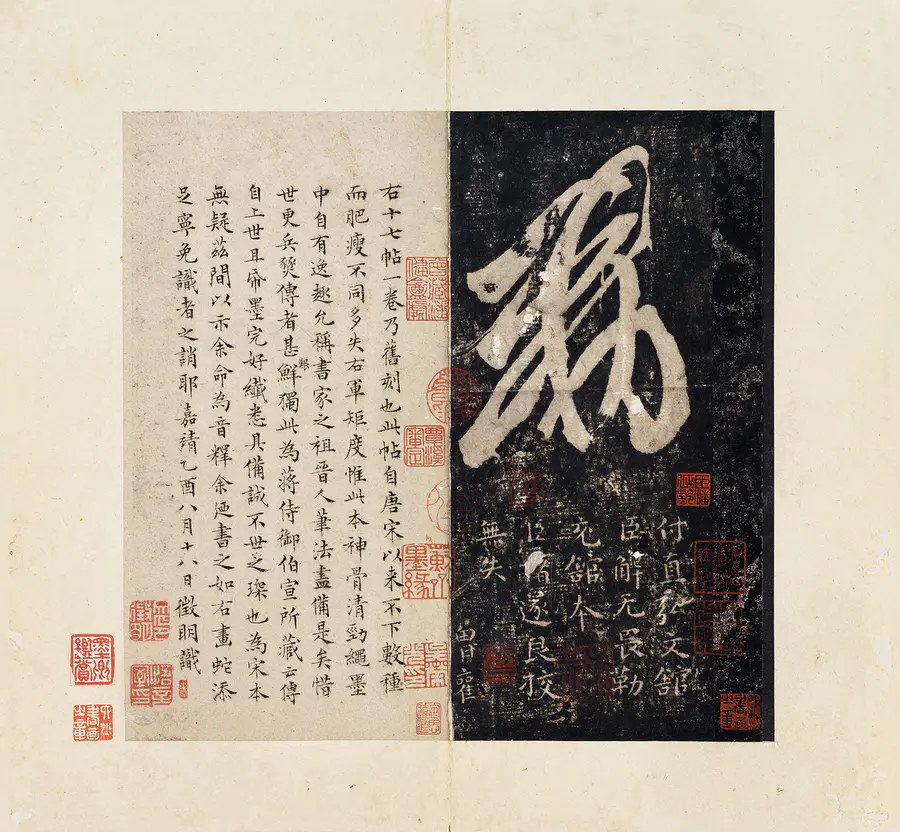 敕
付直弘文舘
臣解无畏勒
充舘本
臣褚遂良挍
無失
右十七帖一卷乃舊刻也此帖自唐宋以来不下數種
而肥瘦不同多失右軍矩度惟此本神骨清勁繩墨
中自有逸趣允稱書家之祖晉人筆法盡備是矣惜
世更兵燹傳者甚鮮獨此為蔣侍御伯宣所藏云傳
自上世且帋墨完好纖悉具備誠不世之琛也為宋本
無疑茲間以示余命為音釋余廼書之如右畫蛇添
足寧免識者之誚耶嘉靖乙酉八月十八日徵明識
覃溪審定
墨緣